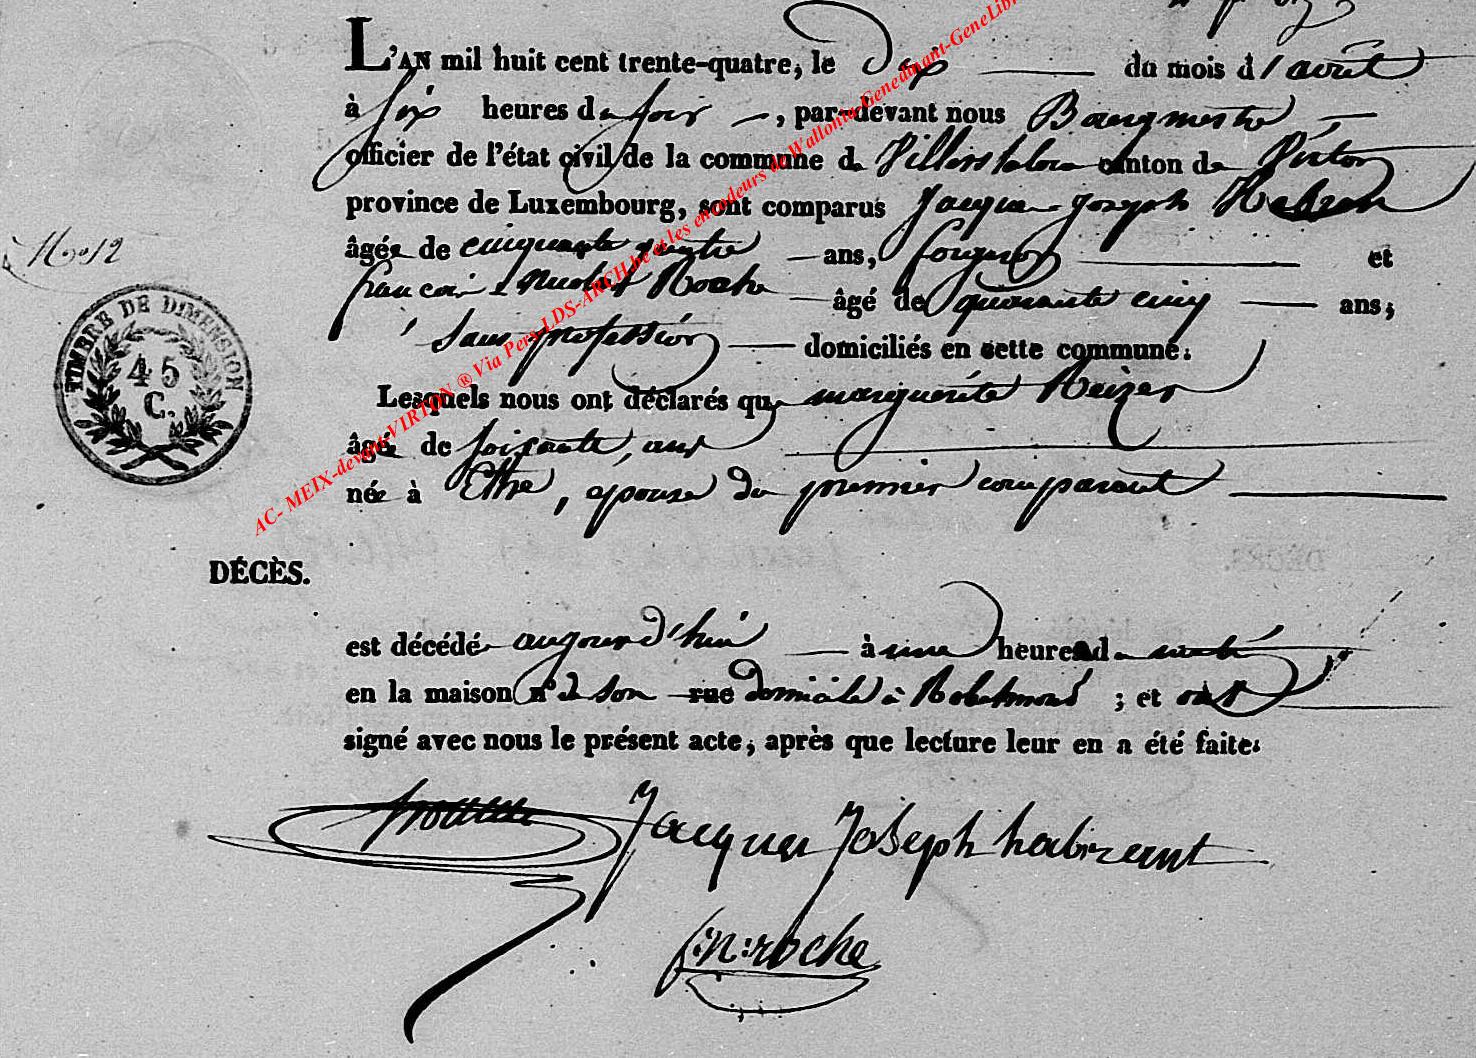 L'AN mil huit cent trente-quatre, le Dix du mois d'avril
à six heures du soir, par-devant nous Bourgmestre
officier de l'état civil de la commune de Villers la loue canton de Virton
province de Luxembourg, sont comparus Jacques Joseph
âgé de cinquante quatre ans, forgeron et
francois Nicolas Roche âgé de quarante cinq ans,
sans profession domiciliés en cette commune.
Lesquels nous ont déclarés que marguerite Reizer
âgée de soixante ans
née à Ethe, epouse du premier comparant
No 12
TIMBRE DE DIMENSION
45
C.
DÉCÈS.
est décédé aujourd'hui à une heure du matin
en la maison n° de son rue domicile à Robelmont ; et ont
signé avec nous le présent acte, après que lecture leur en a été faite.
Jacques Joseph habrant
f:n:roche
AC- MEIX-devant-VIRTON ® Via Pers-LDS-ARCH.be et les encodeurs de Wallonia-Genedinant-GeneLibr